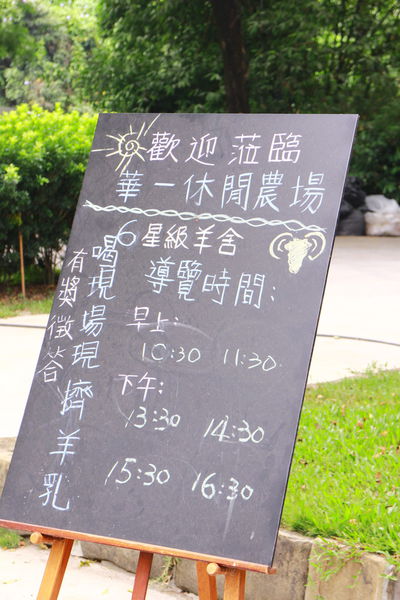 歡迎蒞臨
華一休閒農場
6星級羊舍
導覽時間:
早上:
10:30 11:30
下午:
13:30 14:30
15:30 16:30
喝現場現擠羊乳
有獎徵答